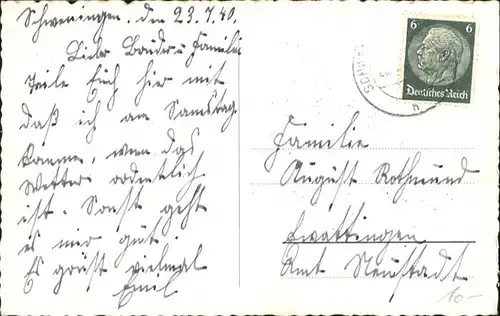 Schweningen, den 23.7.40.
Lieber Bruder u Familie
Teile Euch hier mit
daß ich am Samstag
komme, wenn das
Wetter ordentlich
ist. Sonst geht
es mir gut
Es grüßt vielmal
Emil
6 6
Deutsches Reich
SCHWE
Familie
August Rothmund
Ewattingen
Amt Neustadt
10-